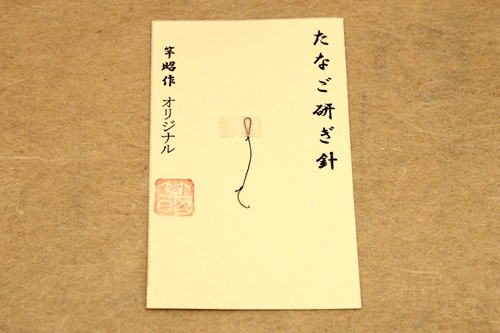 たなご研ぎ針
竿昭作 オリジナル
竿昭